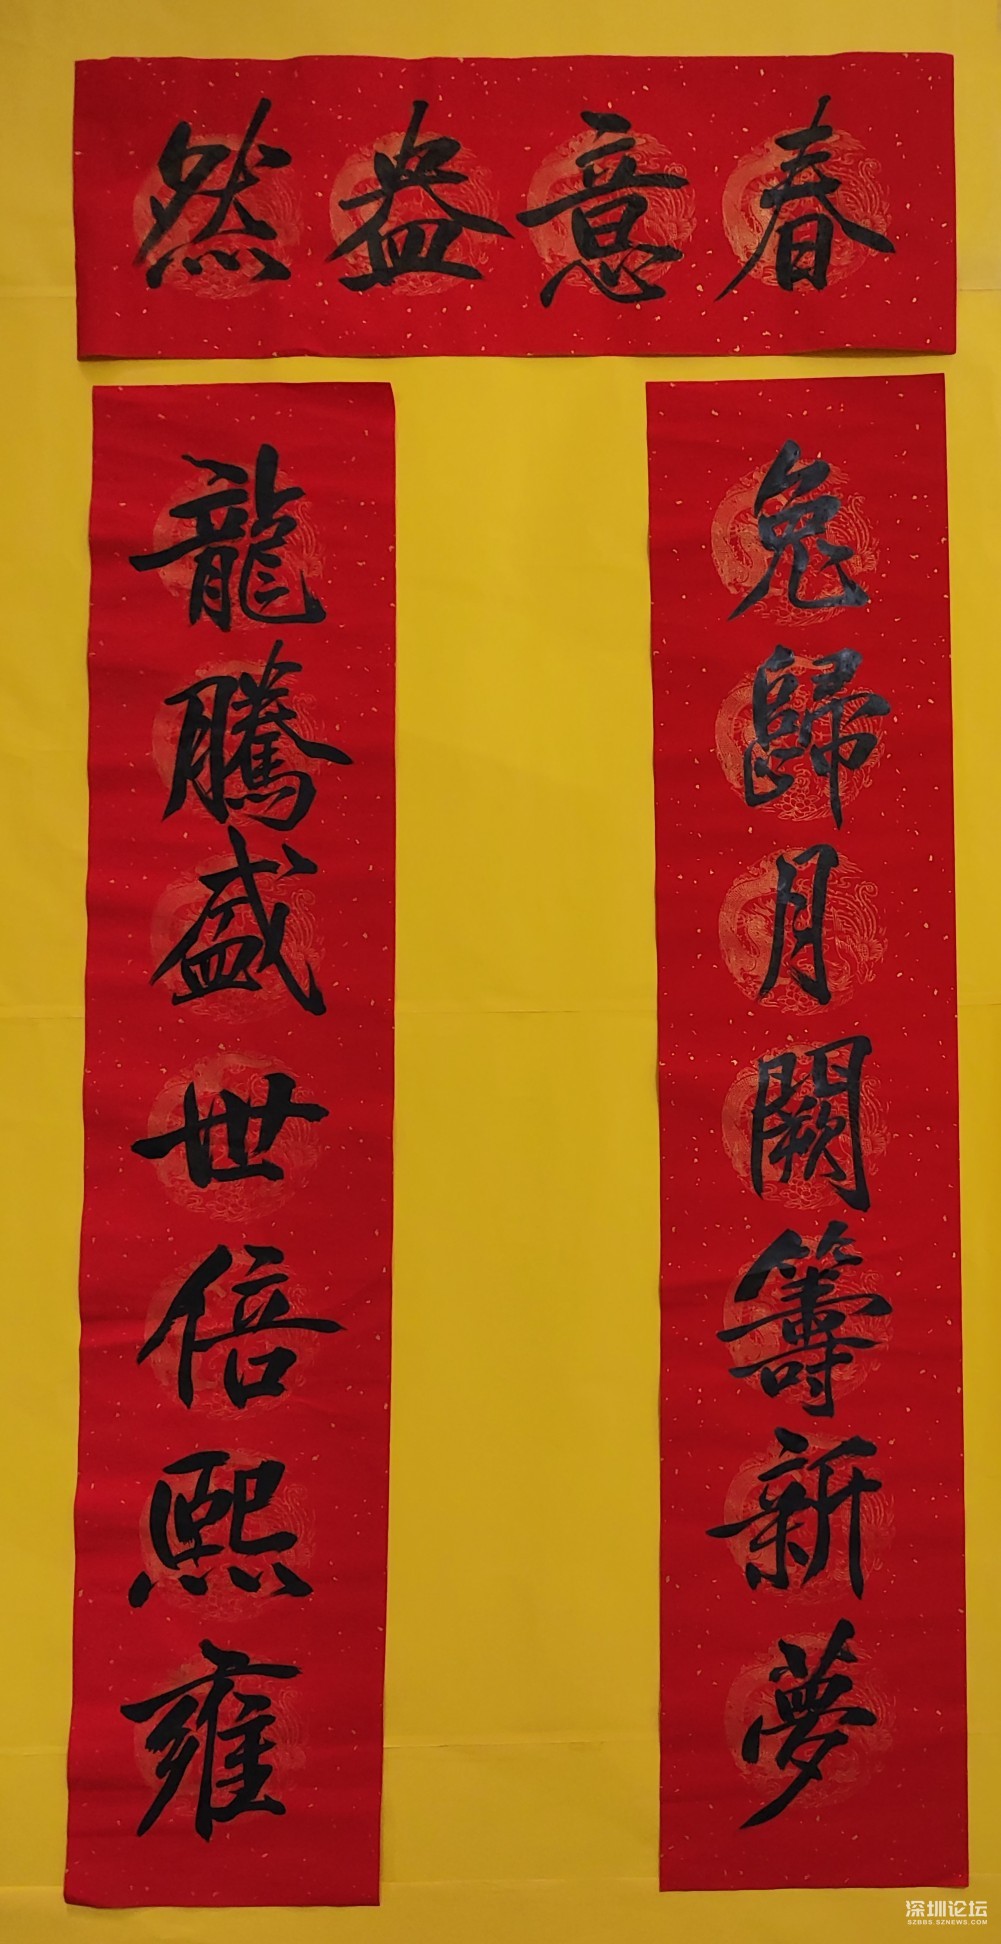 春意盎然
兔歸月闕籌新夢
龍騰盛世倍熙雍
深圳论坛
SZBBS.SZNEWS.COM